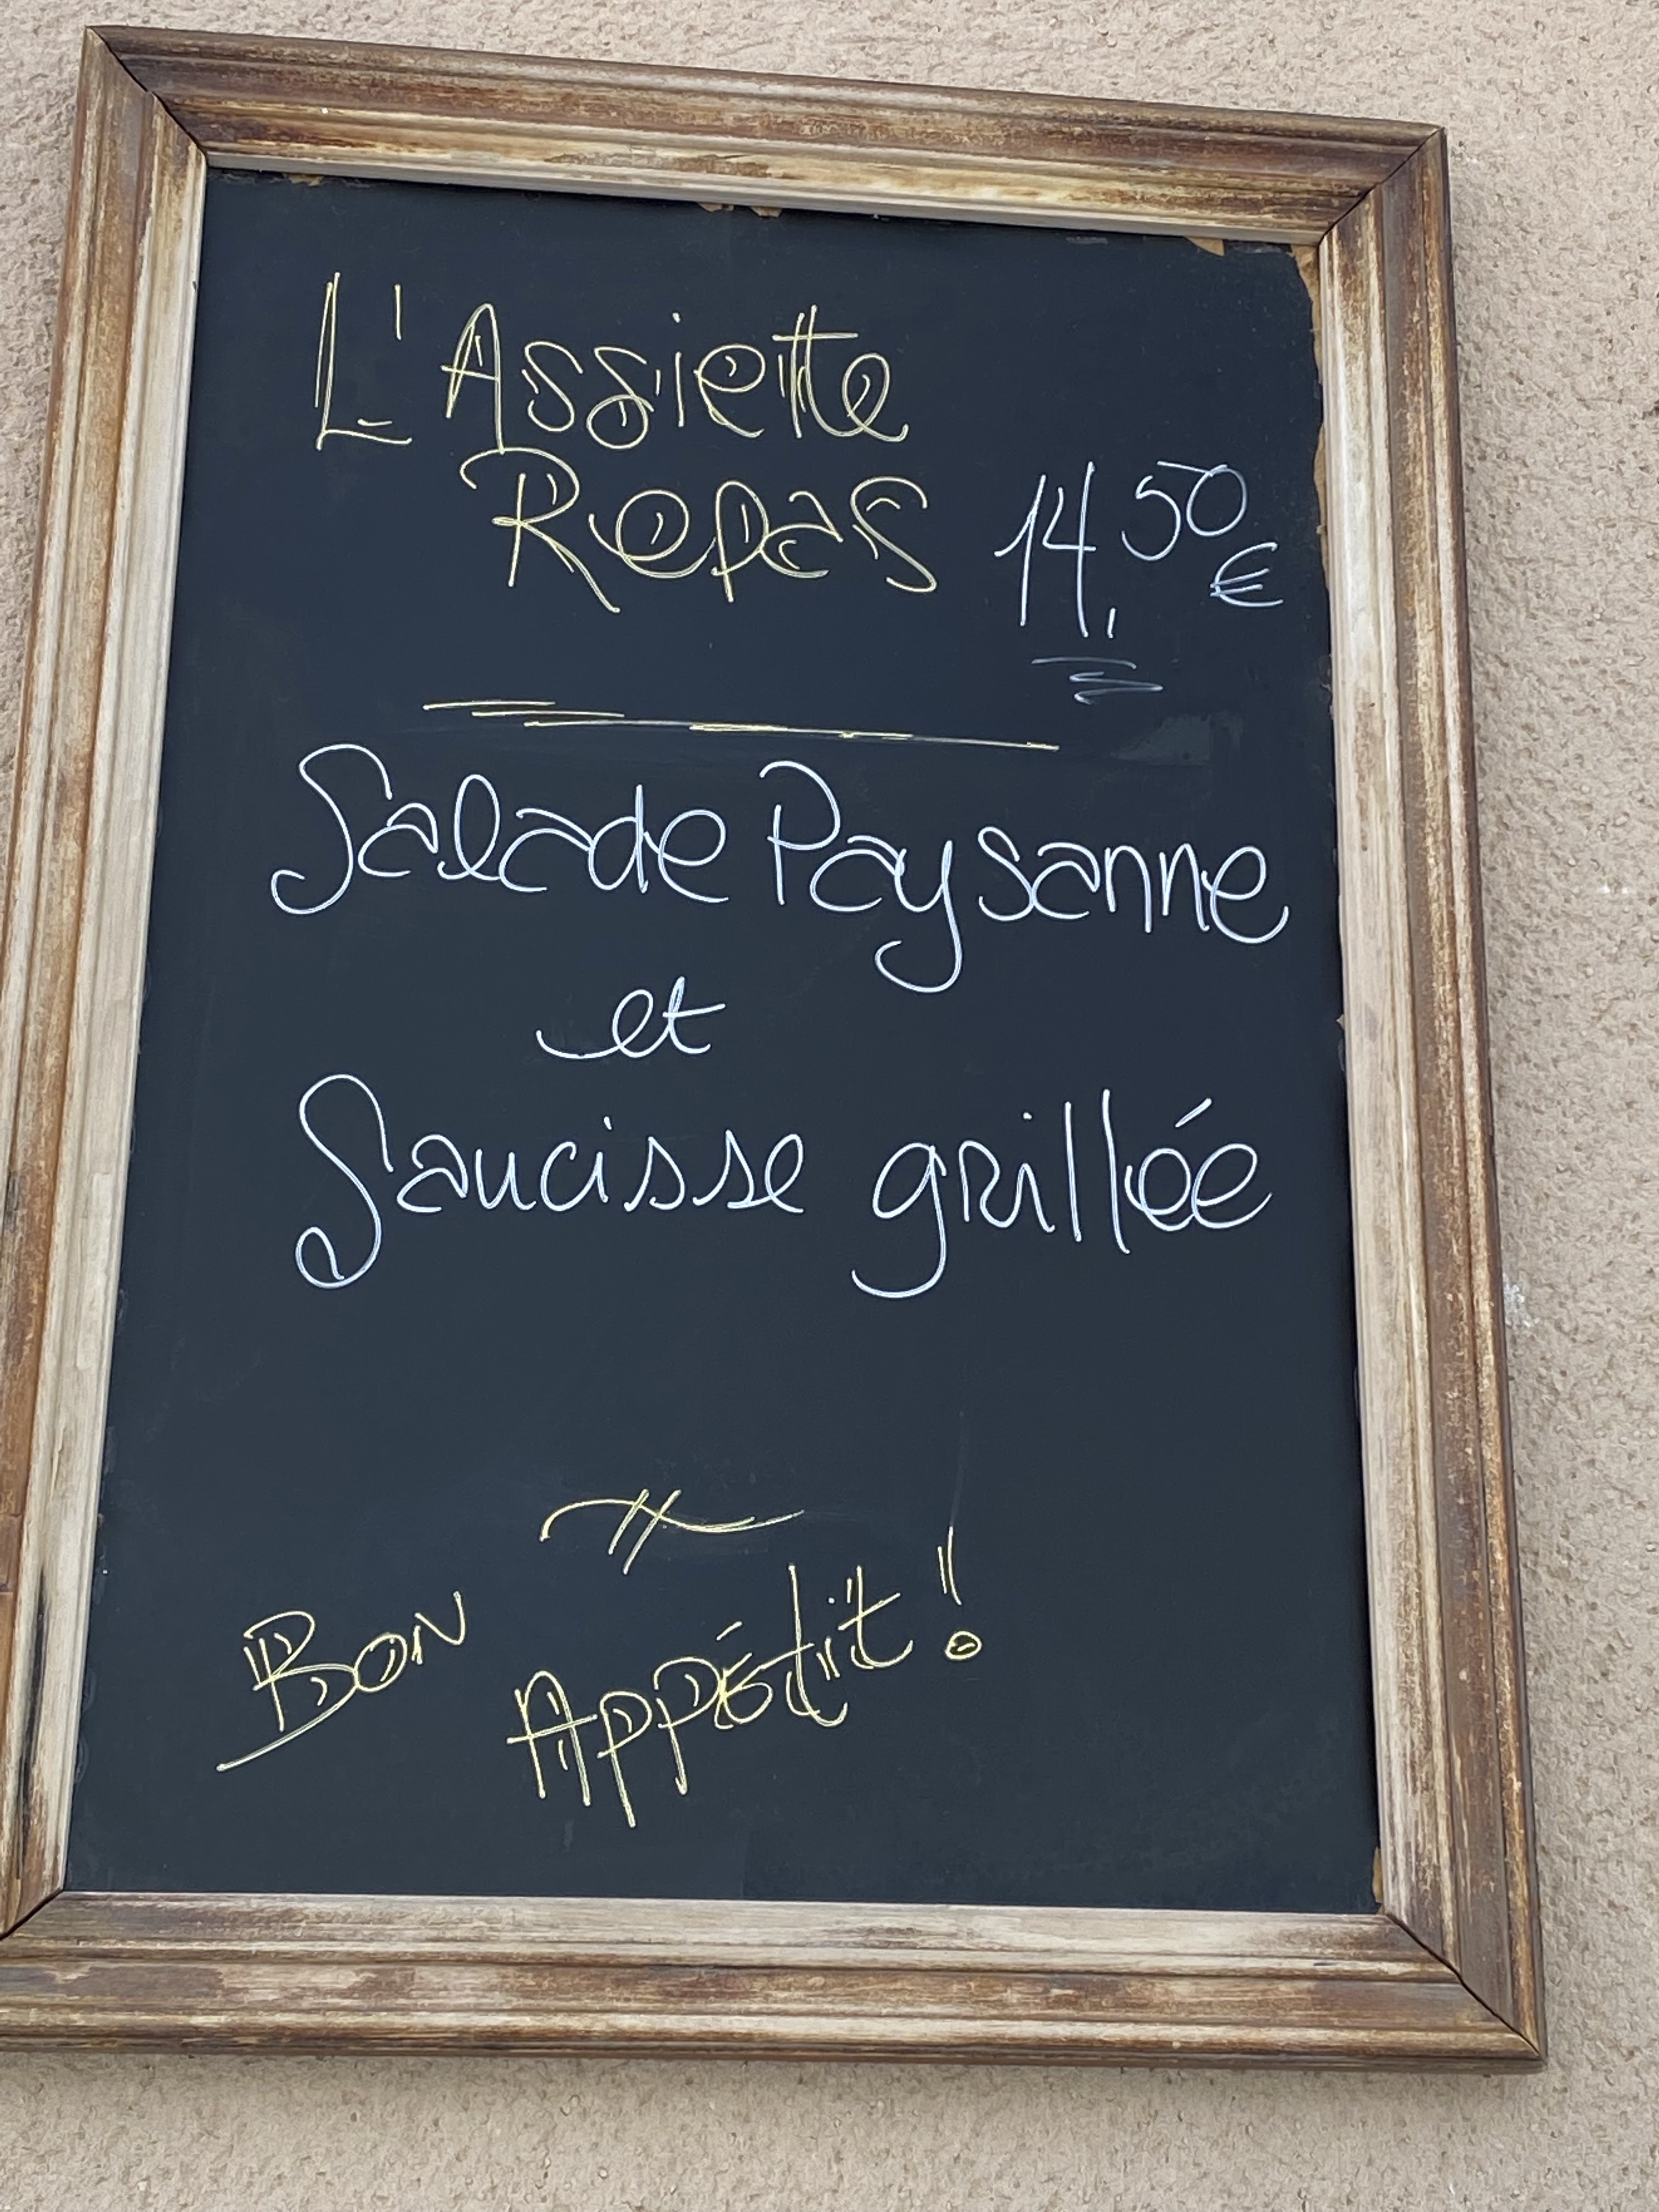 L'Assiette
Repas 14,50 €
Salade Paysanne
et
Saucisse grillée
Bon
Appétit !